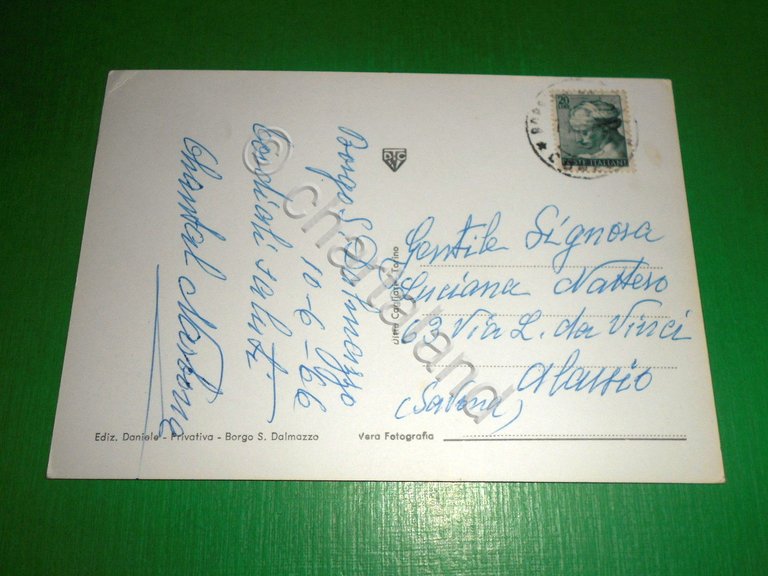 Borgo S. Dalmazzo
10-6-66
Cordiali saluti
Chantal
Gentile Signora
Luciana Nattero
63 Via L. da Vinci
Alassio
(Savona)
Ediz. Daniele - Privativa - Borgo S. Dalmazzo
Vera Fotografia
Ditta Torino
POSTE ITALIANE
© chartaland